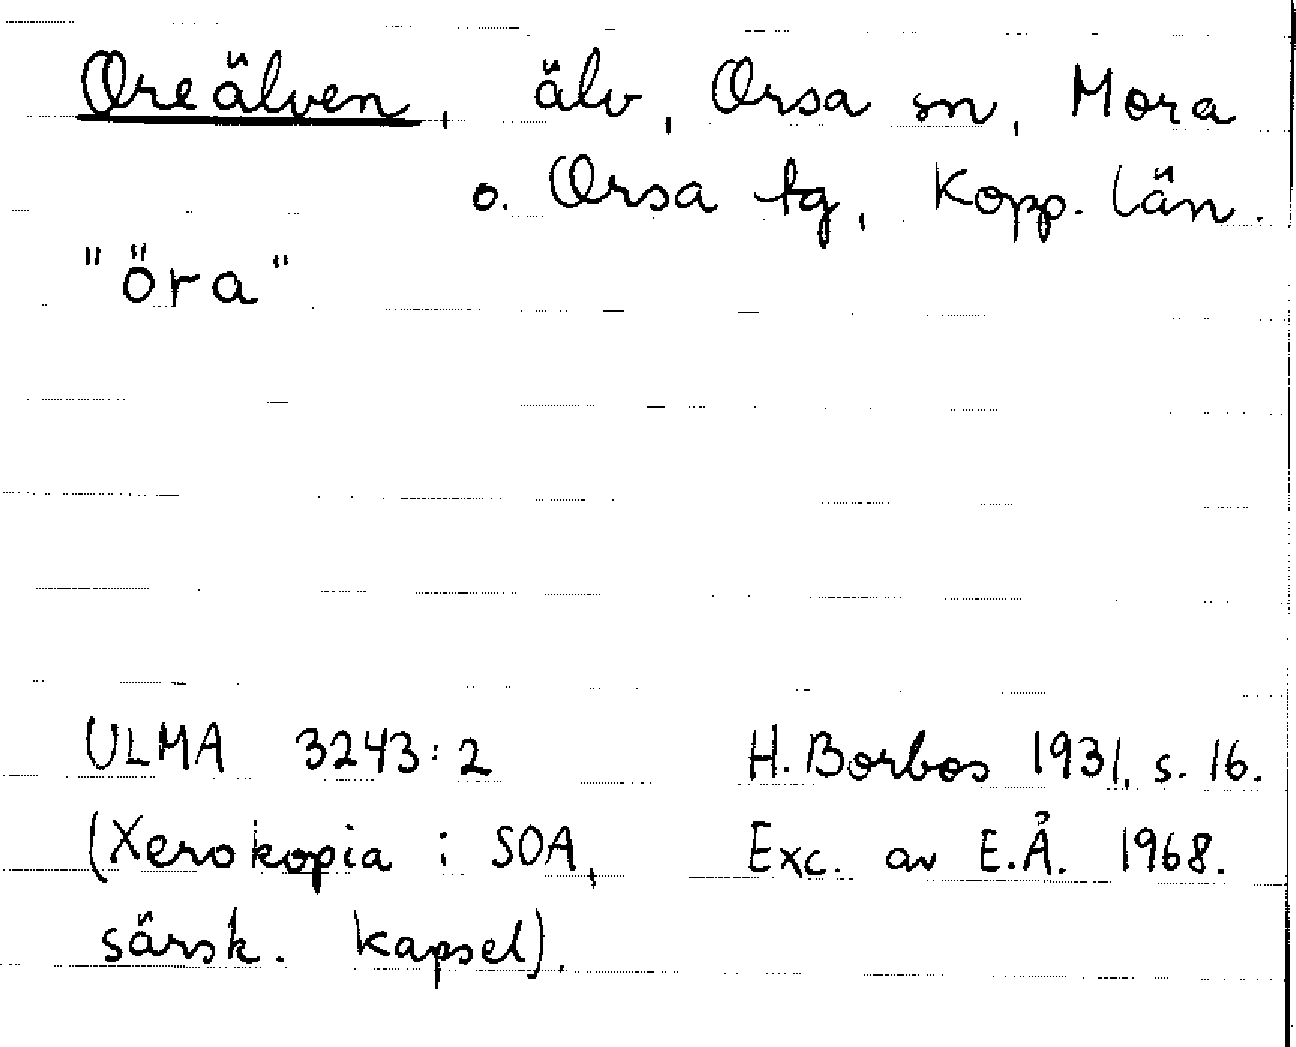 Oreälven, älv, Orsa sn, Mora
o. Orsa tg, Kopp. län.
"öra"
ULMA 3243:2 H. Borbos 1931, s. 16.
(Xerokopia i SOA, Exc. av E.Å. 1968.
särsk. kapsel).